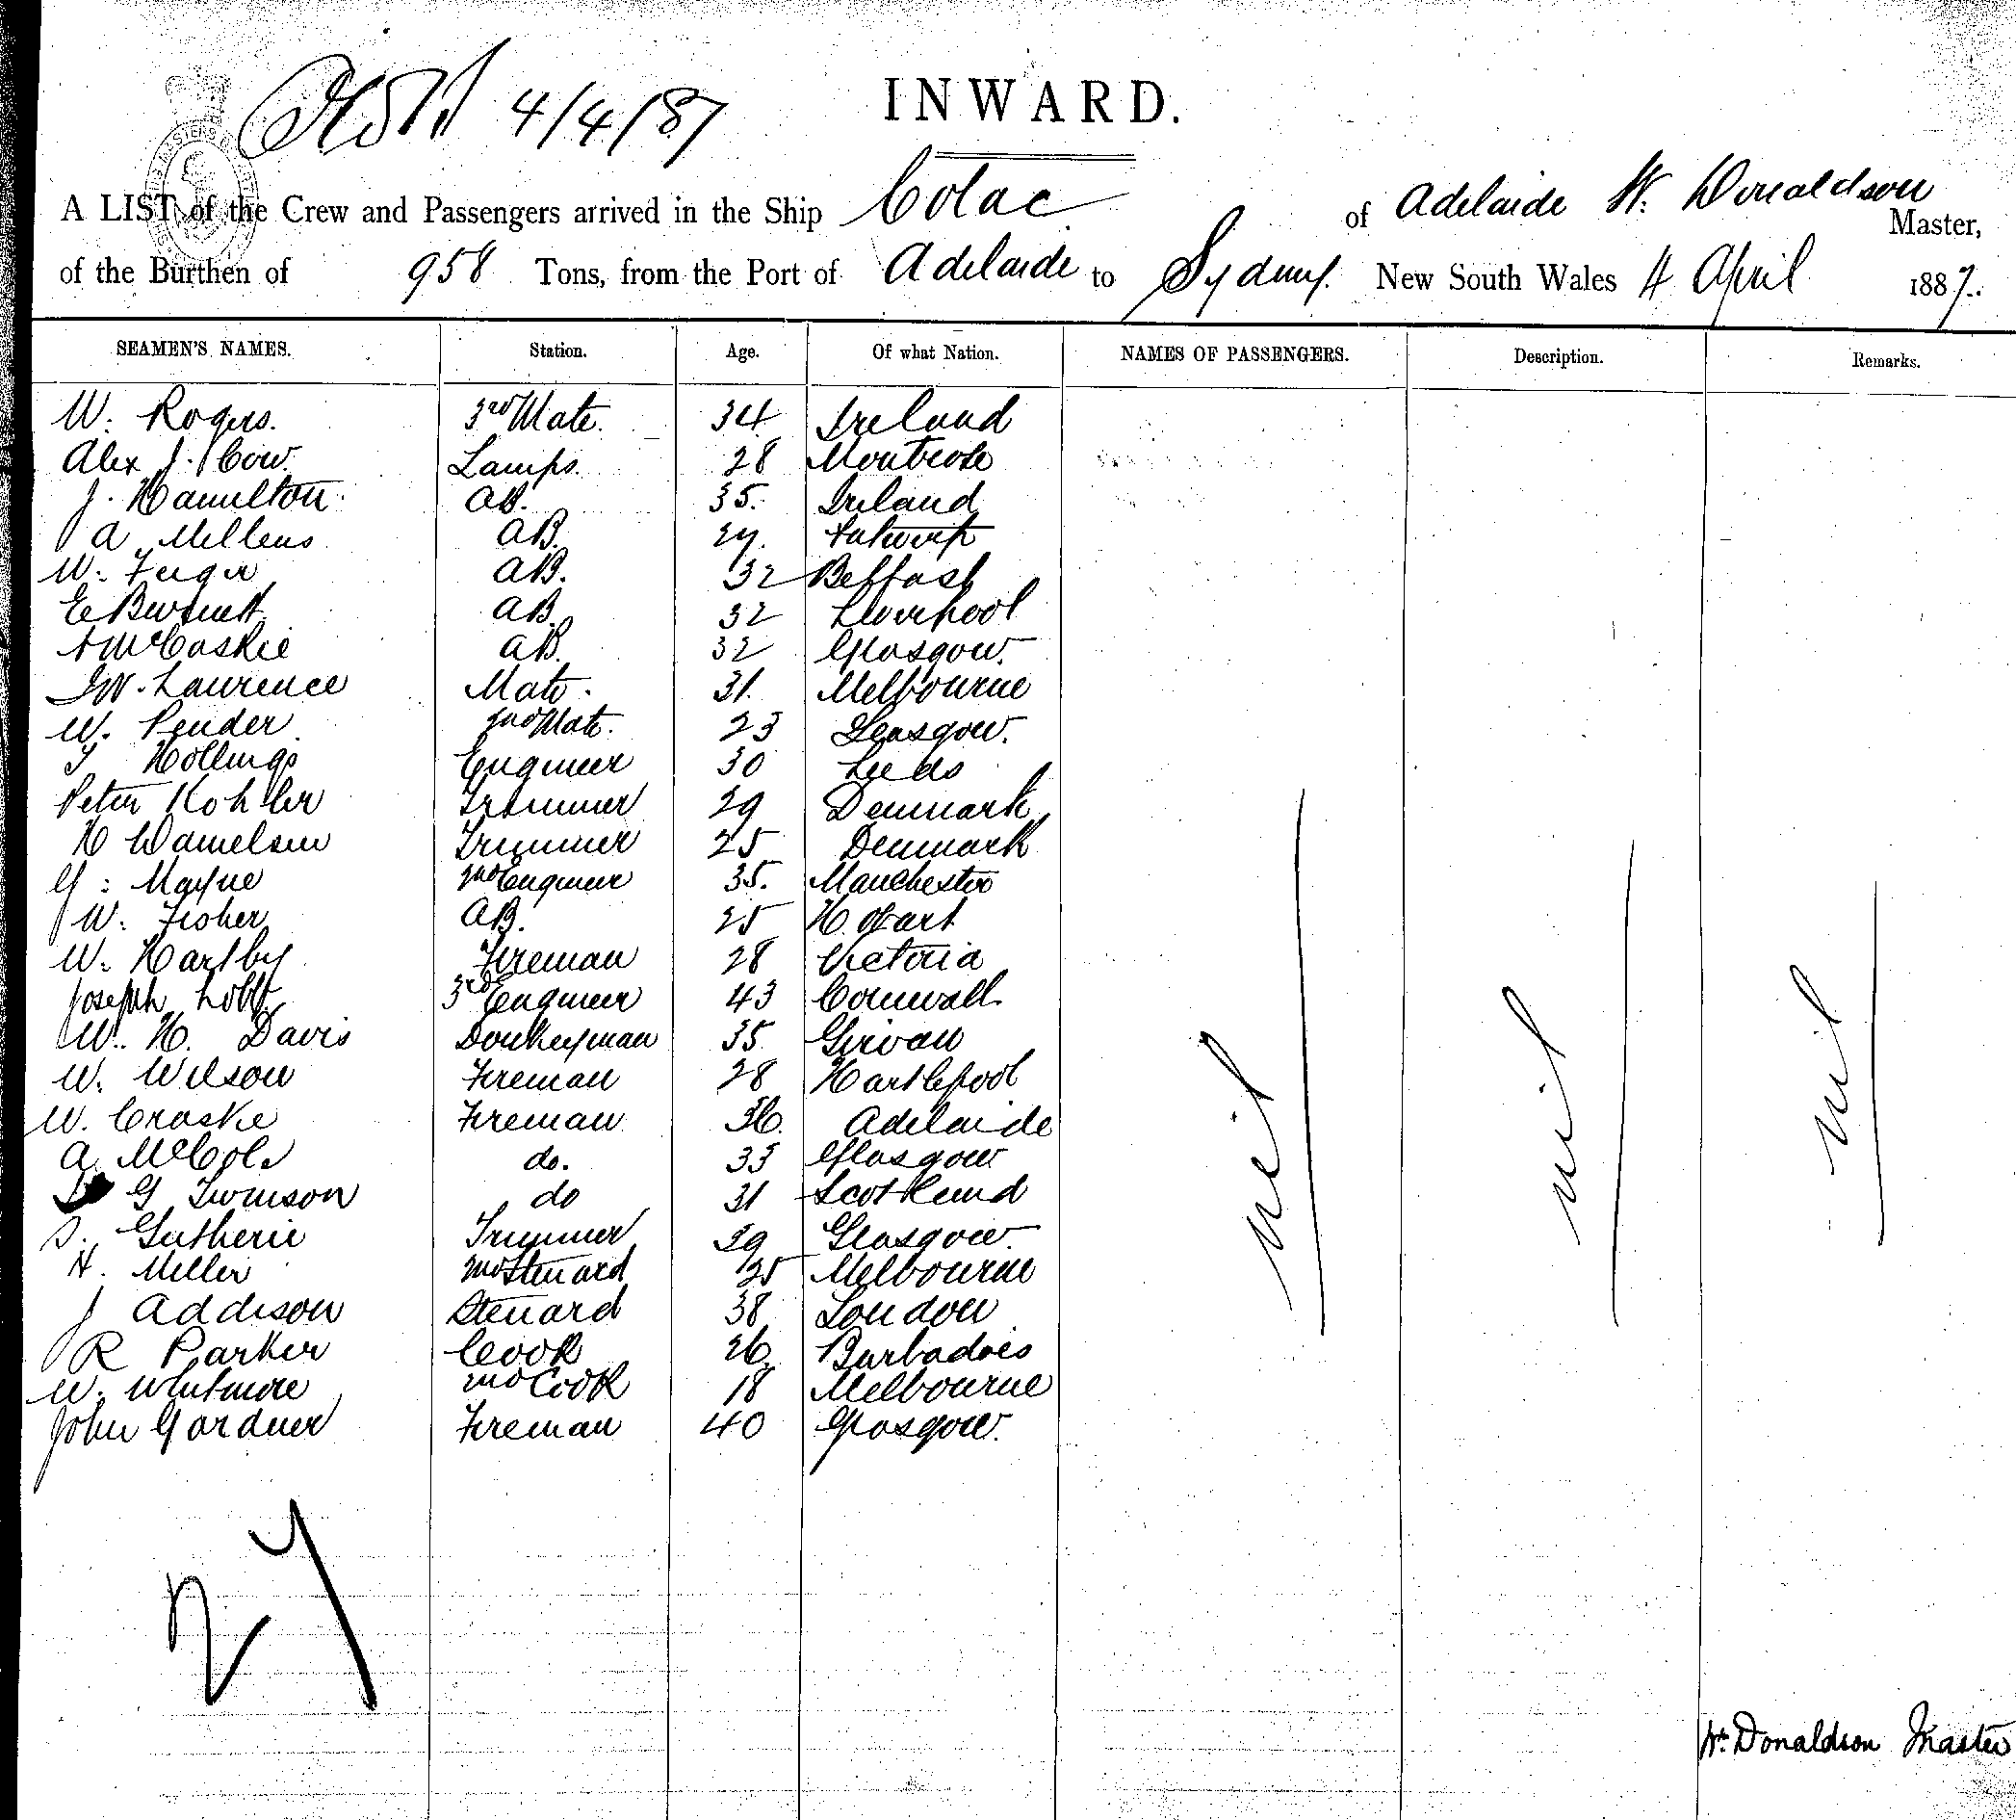 4/4/87
INWARD.
A LIST of the Crew and Passengers arrived in the Ship Colac of Adelaide W. Donaldson Master,
of the Burthen of 958 Tons, from the Port of Adelaide to Sydney. New South Wales 4 April 1887.
SEAMEN'S NAMES. Station. Age. Of what Nation. NAMES OF PASSENGERS. Description. Remarks.
W. Rogers. 3rd Mate. 34 Ireland
Alex J. Cow. Lamps. 28 Montrose
J. Hamilton. AB. 35. Ireland
A. Mellens AB.
W. AB. 32 Belfast
E Burnett AB. 32 Liverpool
A McCaskie AB. 32 Glasgow.
J W. Lawrence Mate. 31. Melbourne
W. Pender 2nd Mate. 23 Glasgow.
Hollings Engineer 30 Leeds
Peter Kohler Trimmer 29 Denmark
H Danielsen Trimmer 25 Denmark
G: Mayne 2nd Engineer 35. Manchester
W. Fisher AB. 25 Hobart
W. Hartby Fireman 28 Victoria
Joseph Lobb 3rd Engineer 43 Cornwall
W. H. Davis Donkeyman 35 Girvan
W. Wilson Fireman 28 Hartlepool
W. Craske Fireman 36. Adelaide
A. McCole do. 33 Glasgow
G do 31 Scotland
S. Gutherie Trimmer 29 Glasgow.
H. Miller 2nd Steward 25 Melbourne
J Addison Steward 38 London
R Parker Cook 26. Barbadoes
W. Whitmore 2nd Cook 18 Melbourne
John Gardner Fireman 40 Glasgow.
nil nil nil
27
Wm Donaldson Master